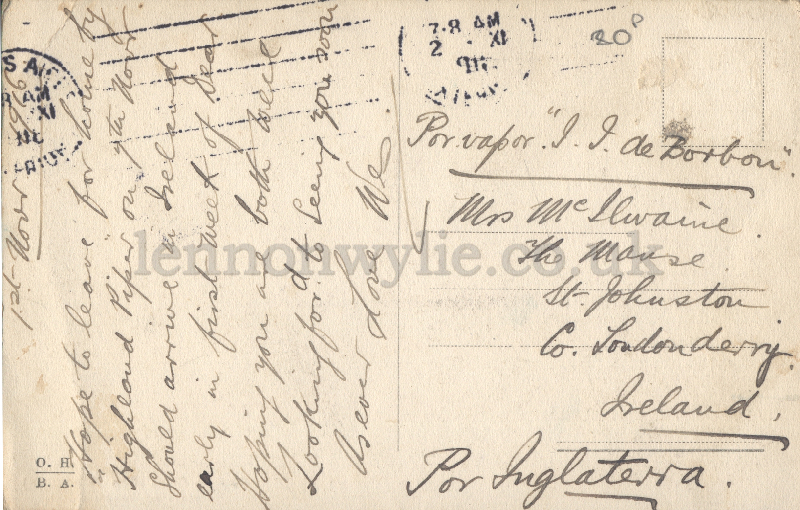 1st Novr 1916
Hope to leave for home by
"Highland Piper" on 7th Novr
Should arrive in Ireland
early in first week of Decr
Hoping you are both well
Looking for.d to seeing you soon
As ever Love We
O. H.
B. A.
S A
8 AM
XI
7-8 AM
2 XI
916
20P
Por vapor "I. I. de Borbon".
Mrs McIlwaine.
The Manse.
St. Johnston
Co. Londonderry.
Ireland,
Por Inglaterra.
lennonwylie.co.uk